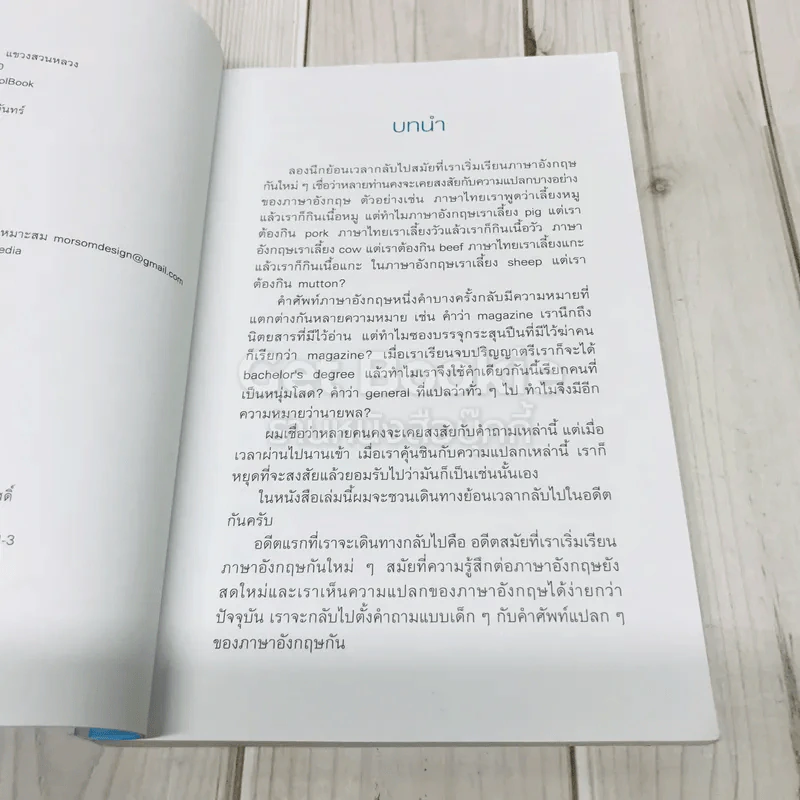 แขวงสวนหลวง
olBook
จันทร์
เหมาะสม morsomdesign@gmail.com
edia
-3
บทนำ
ลองนึกย้อนเวลากลับไปสมัยที่เราเริ่มเรียนภาษาอังกฤษ
กันใหม่ ๆ เชื่อว่าหลายท่านคงจะเคยสงสัยกับความแปลกบางอย่าง
ของภาษาอังกฤษ ตัวอย่างเช่น ภาษาไทยเราพูดว่าเลี้ยงหมู
แล้วเราก็กินเนื้อหมู แต่ทำไมภาษาอังกฤษเราเลี้ยง pig แต่เรา
ต้องกิน pork ภาษาไทยเราเลี้ยงวัวแล้วเราก็กินเนื้อวัว ภาษา
อังกฤษเราเลี้ยง cow แต่เราต้องกิน beef ภาษาไทยเราเลี้ยงแกะ
แล้วเราก็กินเนื้อแกะ ในภาษาอังกฤษเราเลี้ยง sheep แต่เรา
ต้องกิน mutton?
คำศัพท์ภาษาอังกฤษหนึ่งคำบางครั้งกลับมีความหมายที่
แตกต่างกันหลายความหมาย เช่น คำว่า magazine เรานึกถึง
นิตยสารที่มีไว้อ่าน แต่ทำไมซองบรรจุกระสุนปืนที่มีไว้ฆ่าคน
ก็เรียกว่า magazine? เมื่อเราเรียนจบปริญญาตรีเราก็จะได้
bachelor's degree แล้วทำไมเราจึงใช้คำเดียวกันนี้เรียกคนที่
เป็นหนุ่มโสด? คำว่า general ที่แปลว่าทั่ว ๆ ไป ทำไมจึงมีอีก
ความหมายว่านายพล?
ผมเชื่อว่าหลายคนคงจะเคยสงสัยกับคำถามเหล่านี้ แต่เมื่อ
เวลาผ่านไปนานเข้า เมื่อเราคุ้นชินกับความแปลกเหล่านี้ เราก็
หยุดที่จะสงสัยแล้วยอมรับไปว่ามันก็เป็นเช่นนั้นเอง
ในหนังสือเล่มนี้ผมจะชวนเดินทางย้อนเวลากลับไปในอดีต
กันครับ
อดีตแรกที่เราจะเดินทางกลับไปคือ อดีตสมัยที่เราเริ่มเรียน
ภาษาอังกฤษกันใหม่ ๆ สมัยที่ความรู้สึกต่อภาษาอังกฤษยัง
สดใหม่และเราเห็นความแปลกของภาษาอังกฤษได้ง่ายกว่า
ปัจจุบัน เราจะกลับไปตั้งคำถามแบบเด็ก ๆ กับคำศัพท์แปลก ๆ
ของภาษาอังกฤษกัน